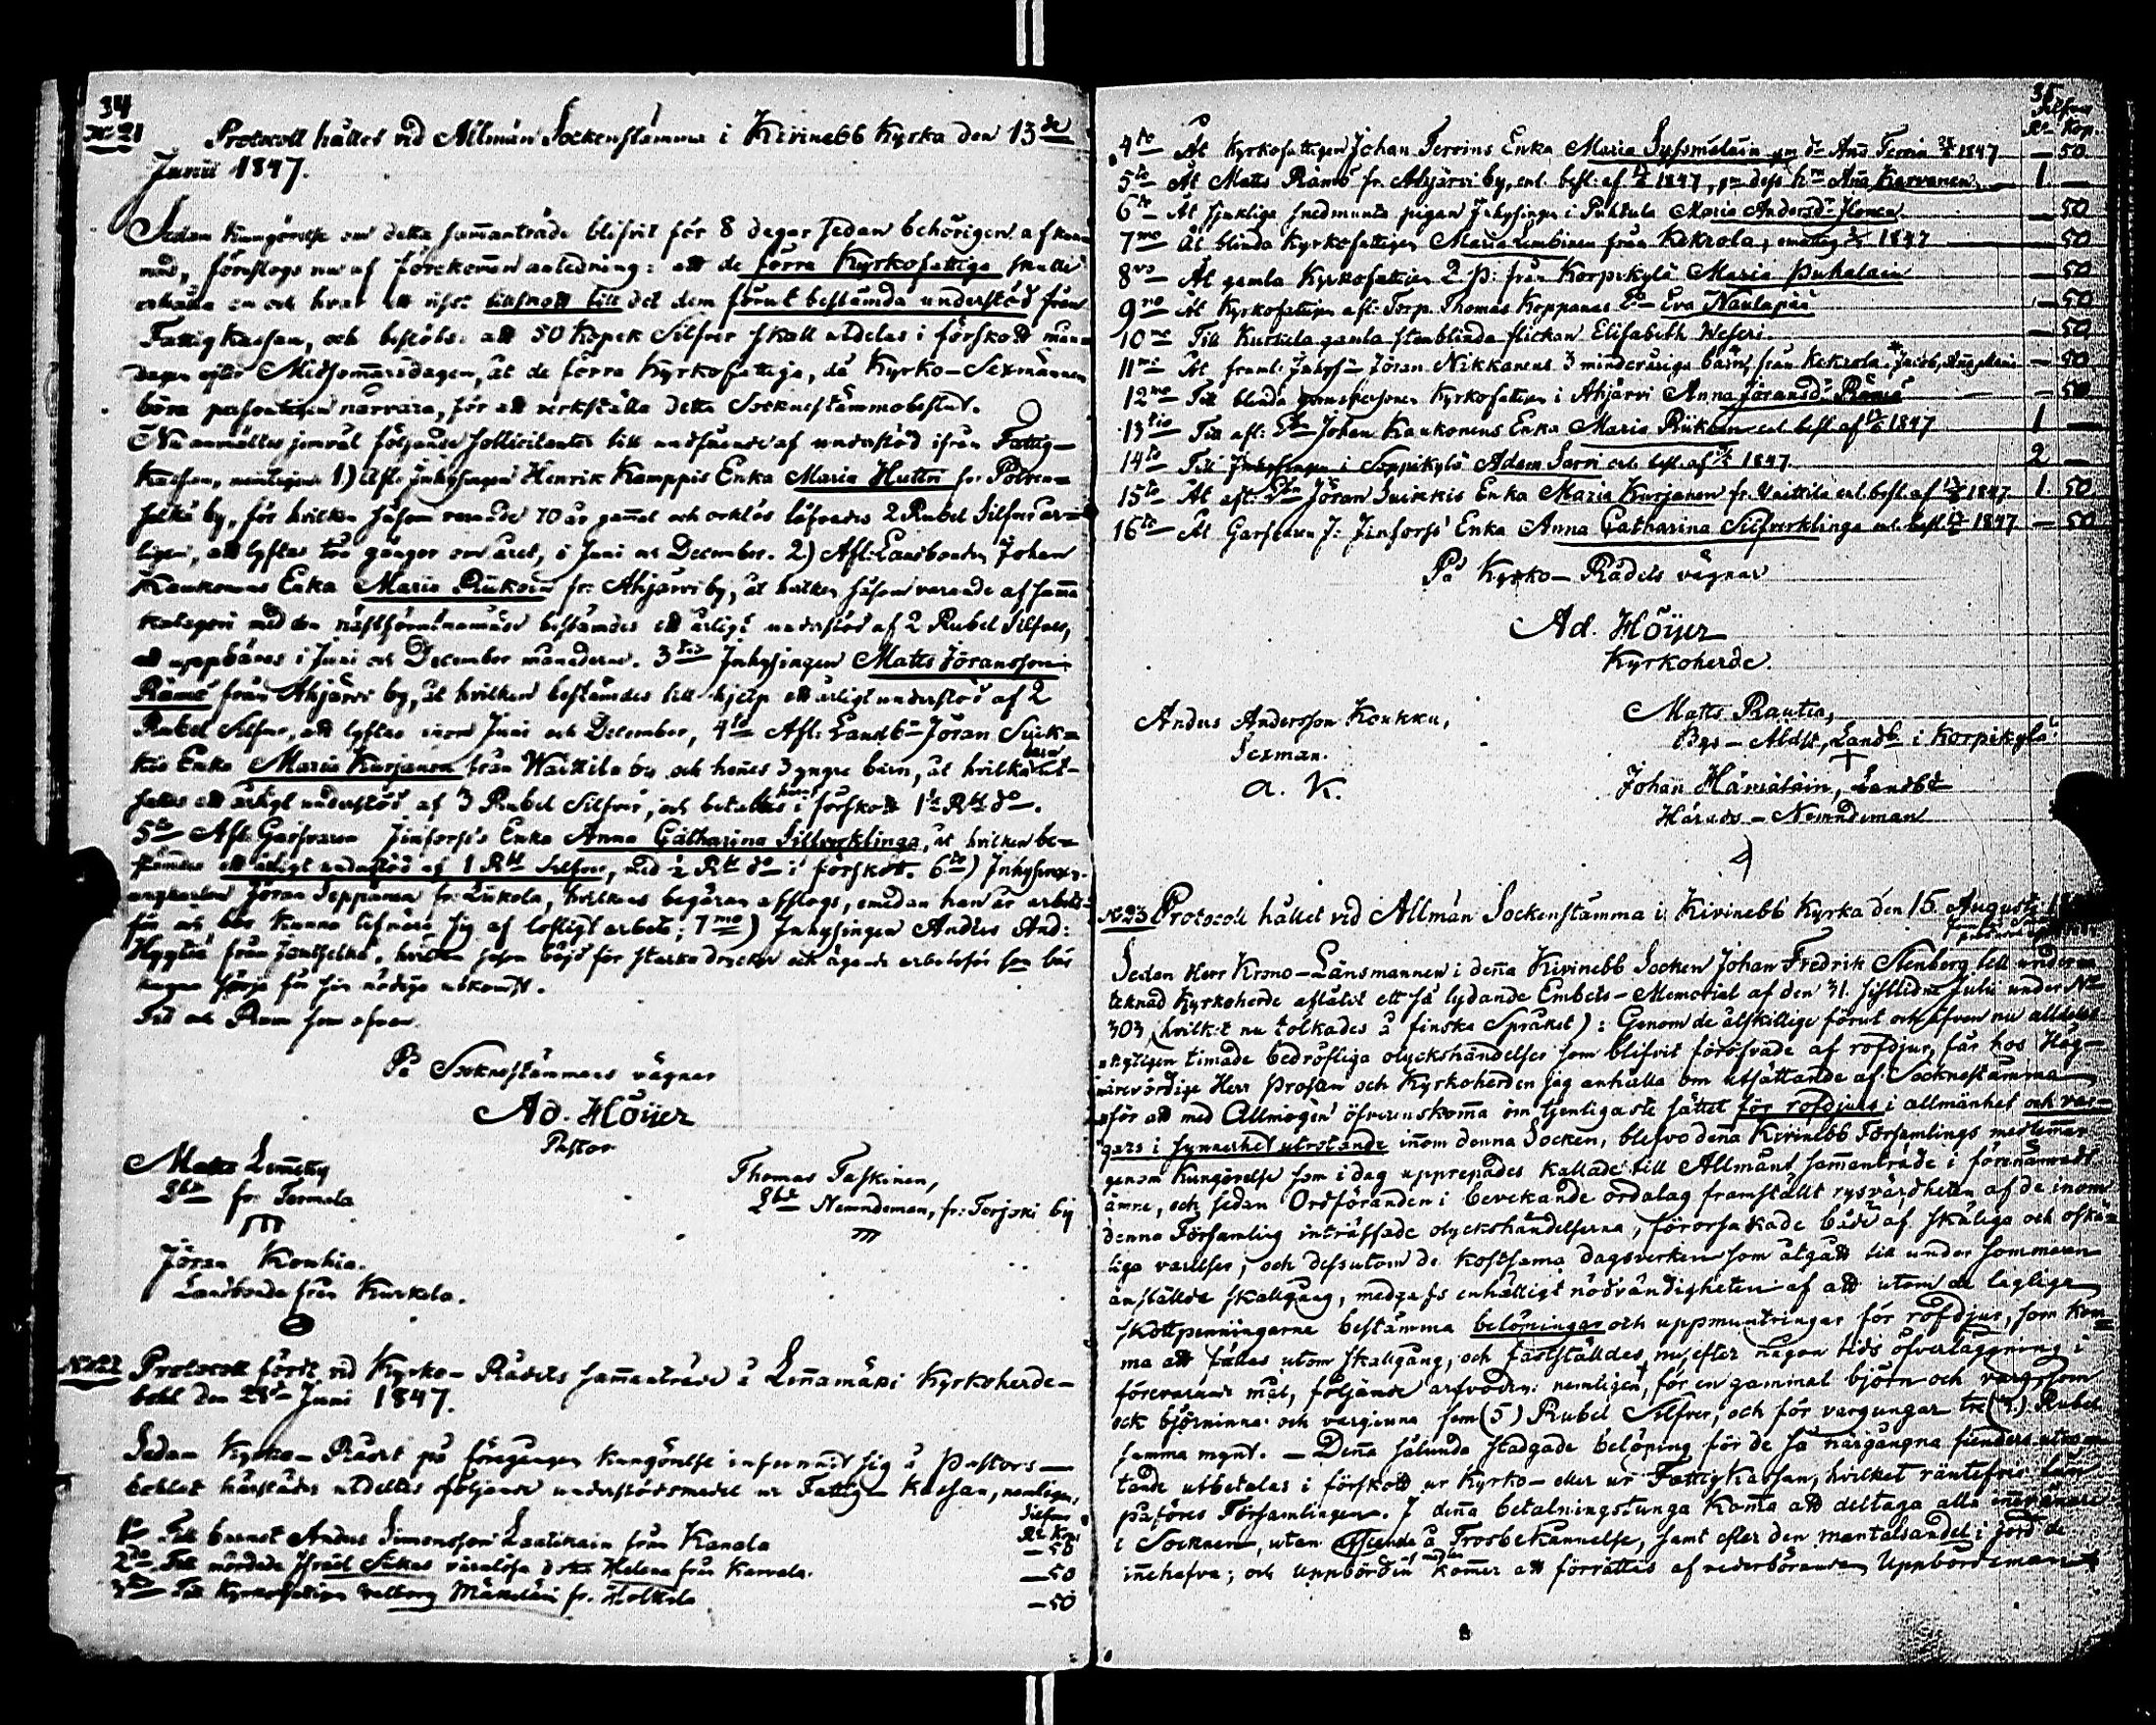 34
No 21
Protocoll hållet vid Allmän Sockenstämma i Kivinebb Kyrka den 13de
Junii 1847.
Sedan kungörelse om detta sammanträde blifvit för 8 dagar sedan behörigen afkun-
nad, föreslogs nu af förekommen anledning: att de förra Kyrkofattiga skulle
erhålla en och hvar ett visst tillskott till det dem förut bestämda understöd från
Fattig Kassan, och beslöts: att 50 Kopek Silfver skall utdelas i förskott
dagen efter Midsommarsdagen, åt de förra Kyrkofattiga, då Kyrko-Sexmännen
böra personligen närvara, för att verkställa detta Sockenstämmobeslut.
Nu anmältes jemväl följande sollicitanter till undfående af understöd ifrån Fattig-
kassan, nemligen 1) Afl. Inhysingen Henrik Kamppis Enka Maria Hutti fr.
by, för hvilken såsom varande 70 år gammal och orklös 2 Rubel Silfver år-
ligen, att lyftas två gånger om året, i Juni och December. 2) Afl. Landbonden Johan
Kaukonens Enka Maria Riikoin fr. Ahjärvi by, åt hvilken såsom varande af samma
kategori med den nästförutnämnde bestämdes ett årligt understöd af 2 Rubel Silfver,
att uppbäras i Juni och December månaderna. 3tio Inhysingen Matts Jöransson
Rämö från Ahjärvi by, åt hvilken bestämdes till hjelp ett årligt understöd af 2
Rubel Silfver, att lyftas inom Juni och December, 4to Afl. Landb. Jöran Suik-
kis Enka Maria Kurjanen från Waittila by och hennes 3 yngre barn, åt hvilka
ett årligt understöd af 3 Rubel Silfver, och betaltes i förskott
5to Afl. Garfvaren Jinforss's Enka Anna Catharina Silfverklinga, åt hvilken be-
stämdes ett årligt understöd af 1 Rbl Silfver, med ½ Rbl do i förskott. 6to) Inhysings-
ungkarlen Jöran Seppänen fr. Liikola, hvilkens begäran afslogs, emedan han är arbets-
för och bör kunna lifnära sig af lofligt arbete; 7mo) Inhysingen Anders And:
Hyytiä från hvilken såsom böjd för starka drycker och ägande arbetsför son bör
kunna sörja för sin nödiga utkomst.
Tid och Rum som ofvan.
På Sockenstämmans vägnar
Ad. Höijer
Pastor
Matts Lemetty
Lbde fr. Termola
Thomas Taskinen,
Lbde Nemndeman, fr. Torjoki by
Jöran Kouhia.
Landbonde från Kurkela.
No 22
Protocoll fördt vid Kyrko-Rådets sammanträde å Linnamäki Kyrkoherde-
bohl den 28de Juni 1847.
Sedan Kyrko-Rådet på föregången kungörelse infunnit sig å Pastors-
bohlet härstädes utdeltes följande understödsmedel ur Fattig-Kassan, nemligen,
Silfver
Rb. Kop.
1o Till barnet Anders Simonsson Lautikain från Kanala — 50
2do Till mördade Israel Sikas värnlösa dotter Helena från Karvala. — 50
3tio Till Kyrkofattigen Valborg Mäkeläin fr. Holttila — 50
35
Silfver
Rb. Kop.
4to Åt Kyrkofattigen Johan Tervins Enka Maria Sysmäläin 1847 — 50.
5to Åt Matts Rämö fr. Ahjärvi by, enl. besl. af 13/6 1847, Karvanen 1. —
6to Åt sjukliga pigan Inhysingen i Puhtula Maria Andersdr Ilonen — 50
7mo Åt blinda Kyrkofattigen Maria Lembinen från Kekrola, 1847 — 50
8vo Åt gamla Kyrkofattigen från Korpikylä Maria Puhalain — 50
9no Åt Kyrkofattigen afl. Torp. Thomas Koppanas Eva Naulapää — 50
10mo Till Kurkela gamla stenblinda flickan Elisabeth Weseri — 50
11mo Åt framl. Inhys. Jöran Nikkanens 3 minderåriga barn från Kekrola — 50
12mo Till blinda Kyrkofattigen i Ahjärvi Anna Jöransdr Rämö — 50
13tio Till afl. Lbn Johan Kaukonens Enka Maria Riikoin enl. besl. af 13/6 1847 1 —
14to Till Inhysingen i Seppikylä Adam Sarvi enl. besl. af 1847. 2 —
15to Åt afl. Lbn Jöran Suikkis Enka Maria Kurjanen fr. Vaittila enl. besl. af 13/6 1847 1. 50
16to Åt Garfvaren J. Jinforss' Enka Anna Catharina Silfverklinga enl. besl. 13/6 1847 — 50
På Kyrko-Rådets vägnar
Ad. Höijer
Kyrkoherde.
Anders Andersson Koukku,
Sexman.
A. K.
Matts Rautia,
Bys-Äldste, Landb. i Korpikylä
Johan Hämäläin, Landbde
Härads-Nemndeman
No 23 Protocoll hållet vid Allmän Sockenstämma i Kivinebb Kyrka den 15. Augusti
Sedan Herr Krono-Länsmannen i denna Kivinebb Socken Johan Fredrik Stenberg till under-
teknad Kyrkoherde aflåtit ett så lydande Embets-Memorial af den 31. sistlidne Julii under No
303, (hvilket nu tolkades å finska Språket): Genom de åtskillige förut och äfven nu alldeles
nyligen timade bedröfliga olyckshändelser som blifvit föröfvade af rofdjur, får hos Hög-
ärevördige Herr Prosten och Kyrkoherden jag anhålla om utsättande af Sockenstämma
för att med Allmogen öfverenskomma om tjenligaste sättet för rofdjurs i allmänhet och var-
gars i synnerhet utrotande inom denna Socken, blefvo denna Kivinebb Församlings medlemmar
genom Kungörelse som i dag upprepades kallade till Allmänt sammanträde i förenämndt
ämne, och sedan Ordföranden i bevekande ordalag framställt rysvärdheten af de inom
denna Församling inträffade olyckshändelserna, förorsakade både af skäliga och oskä-
liga varelser, och dessutom de kostsama dagsverken som åtgått till under sommaren
anställde skallgång, medgafs enhälligt nödvändigheten af att utom de lagliga
skottpenningarne bestämma belöningar och uppmuntringar för rofdjur, som kom-
ma att fällas utom skallgång, och fastställdes nu, efter någon tids öfverläggning i
förevarande mål, följande arfvoden: nemligen, för en gammal björn och varg, som
ock björninna och varginna fem (5) Rubel Silfver, och för vargungar tre (3) Rubel
samma mynt. — Denna sålunda stadgade belöning för de så närgångna fienders utro-
tande utbetalas i förskott ur Kyrko- eller ur Fattig Kassan, hvilket räntefria lån
påföres Församlingen. I denna betalningstunga komma att deltaga alla innevånare
i Socknen, utan afseende å Trosbekännelse, samt efter den mantalsandel i jord de
innehafva; och Uppbörden kommer att förrättas af vederbörande Uppbördsman